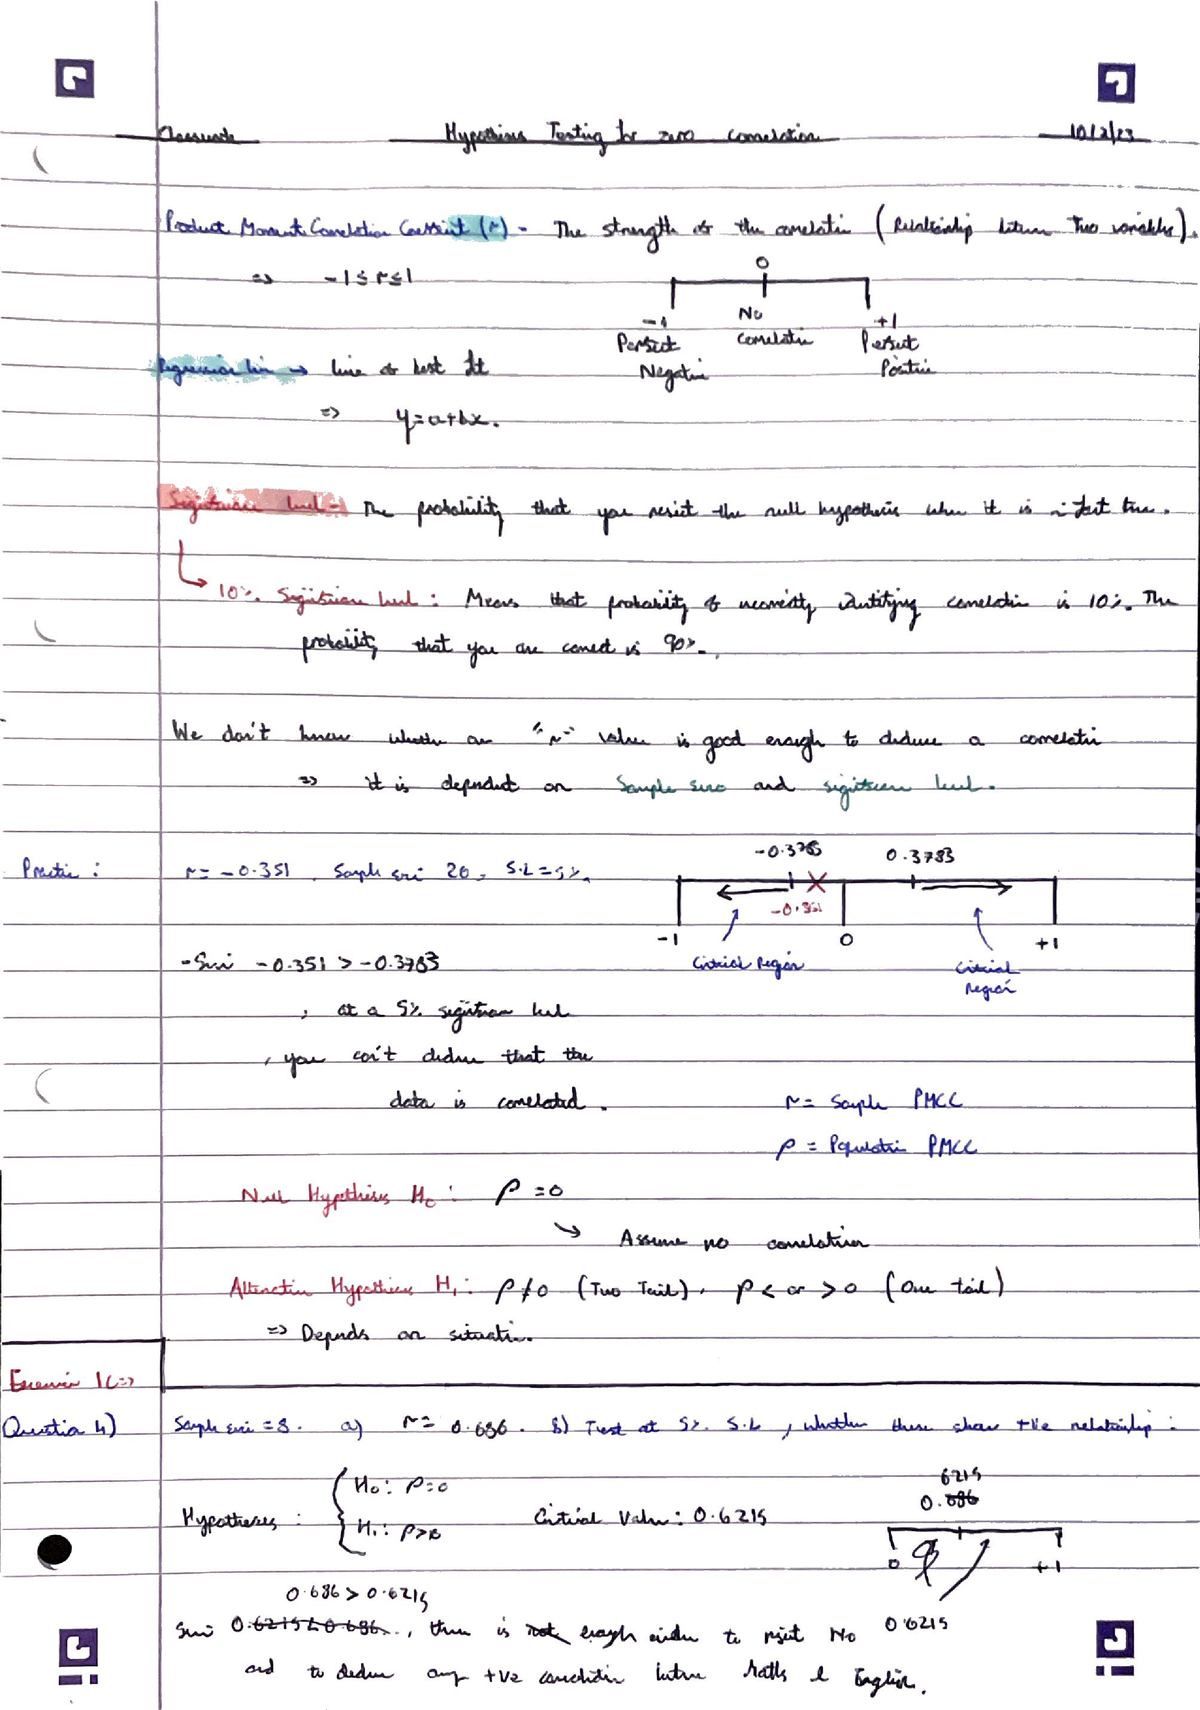 Classwork Hypothesis Testing for zero correlation 10/2/23
Product Moment Correlation Coefficient (r) - The strength of the correlation (Relationship between Two variables).
=> -1 ≤ r ≤ 1
0
-1 No +1
Perfect Correlation Perfect
Negative Positive
Regression line → line of best fit
=> y = a + bx.
Significance level - The probability that you reject the null hypothesis when it is in fact true.
10% Significance level : Means that probability of incorrectly identifying correlation is 10%. The
probability that you are correct is 90%.
We don't know whether an "r" value is good enough to deduce a correlation
=> it is dependent on sample size and significance level.
Practice : r = -0.351, Sample size 20, S.L = 5%.
-0.3783 0.3783
-0.351
-1 0 +1
Critical Region Critical Region
- Since -0.351 > -0.3783
, at a 5% significance level
, you can't deduce that the
data is correlated.
r = Sample PMCC
ρ = Population PMCC
Null Hypothesis H₀ : ρ = 0
↘ Assume no correlation
Alternative Hypothesis H₁ : ρ ≠ 0 (Two Tail), ρ < or > 0 (One tail)
=> Depends on situation.
Exercise 1C =>
Question 4) Sample size = 8. a) r = 0.686. b) Test at 5% S.L, whether these show +ve relationship :
Hypotheses : { H₀ : ρ = 0
H₁ : ρ > 0
Critical Value : 0.6215
6215
0.686
0 +1
0.6215
0.686 > 0.6215
Since 0.6215 < 0.686, there is not enough evidence to reject H₀
and to deduce any +ve correlation between Maths & English.